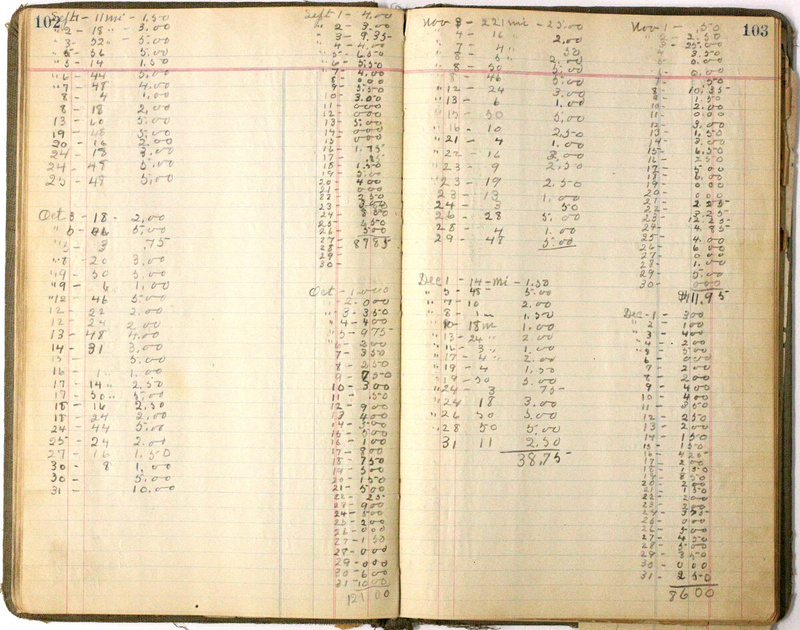 102
Sept 1 - 11 mi - 1.50
" 2 - 18 " - 3.00
" 3 - 52 - 5.00
" 5 - 56 5.00
" 5 - 14 1.50
" 6 - 44 5.00
" 7 - 48 4.00
8 - 4 1.00
8 - 18 2.00
13 - 60 5.00
19 - 48 5.00
20 - 16 2.00
24 - 18 3.00
24 - 48 5.00
25 - 48 5.00
Oct 3 - 18 - 2.00
" 5 - 46 5.00
" 5 - 3 .75
" 8 - 20 3.00
" 9 - 50 5.00
" 9 - 6 1.00
" 12 - 46 5.00
12 - 22 2.00
12 - 24 2.00
13 - 48 4.00
14 - 31 3.00
15 - 5.00
16 - 1.00
17 - 14 " 2.50
17 - 50 " 5.00
18 - 16 2.50
18 - 24 2.00
24 - 44 5.00
25 - 24 2.00
27 - 16 1.50
30 - 8 1.00
30 - 5.00
31 - 10.00
Sept 1 - 4.00
" 2 - 3.00
" 3 - 9.35
" 4 - 4.00
" 5 - 6.50
" 6 - 5.50
7 - 4.00
8 - 0.00
9 - 5.50
10 - 3.00
11 - 000
12 - 000
13 - 5.00
14 - 000
15 - 000
16 - 1.75
17 -
18 - 1.50
19 - 5.00
20 - 4.00
21 - 000
22 2.50
23
24 - 8.50
25 - 6.50
26 - 5.00
27 - 87.85
28 -
29 -
30 -
Oct - 1 - 000
" - 2 - 000
" - 3 - 350
" - 4 - 400
" - 5 - 9.75
" - 6 - 200
7 - 350
8 - 250
9 - 750
10 - 300
11 - .50
12 - 900
13 - 400
14 - 300
15 - 500
16 - 100
17 - 800
18 - 750
19 - 500
20 - 150
21 - 500
22 - 25
23 - 900
24 - 500
25 - 200
26 - 000
27 - 1.50
28 - 000
29 - 000
30 - 600
31 - 1000
121 00
103
Nov 3 - 221 mi - 25.00
" 4 - 16 " 2.00
" 7 - 4 " 50
" 8 - 5 " 2.00
" 8 - 50 5.00
" 8 - 46 5.00
" 12 - 24 3.00
" 13 - 6 1.00
" 15 - 50 5.00
" 16 - 10 2.50
" 21 - 4 1.00
" 22 - 16 3.00
" 23 - 9 2.50
" 23 - 19 2.50
23 - 13 1.00
24 - 3 50
26 - 28 5.00
28 - 4 1.00
29 - 48 5.00
Dec 1 - 14 - mi - 1.50
" 5 - 48 " 5.00
" 7 - 10 2.00
" 8 - 1 1.50
" 10 - 18 m 1.00
" 13 - 24 " 2.00
" 16 - 3 " 1.00
" 17 - 4 " 2.00
" 19 - 4 1.50
" 19 - 50 5.00
" 24 - 3 75
" 24 18 3.00
" 26 50 5.00
" 28 50 5.00
31 11 2.50
38.75
Nov 1 - .50
2 - 2.50
3 - 25.00
4 3.50
5 0.00
6 0.00
7
8 10.35
9 1.50
10 - 2.00
11 - 0.00
12 - 3.00
13 - 1.50
14 - 3.00
15 - 6.50
16 - 2.50
17 - 5.00
18 - 6.00
19 - 0.00
20 - 0.00
21 - 2.25
22 - 3.25
23 - 12.25
24 - 4.85
25 - 4.00
26 - 6.00
27 - 0.00
28 - 1.00
29 - 5.00
30 - 000
$111.95
Dec - 1 - 300
" 2 100
" 3 - 400
" 4 - 200
" 5 500
6 000
7 200
8 200
9 - 400
10 - 400
11 - 350
12 - 250
13 - 200
14 - 150
15 - 150
16 - 425
17 - 200
18 - 150
19 - 850
20 - 200
21 - 150
22 - 200
23 - 300
24 - 375
25 - 000
26 - 500
27 - 450
28 - 500
29 - 350
30 - 000
31 - 250
86 00